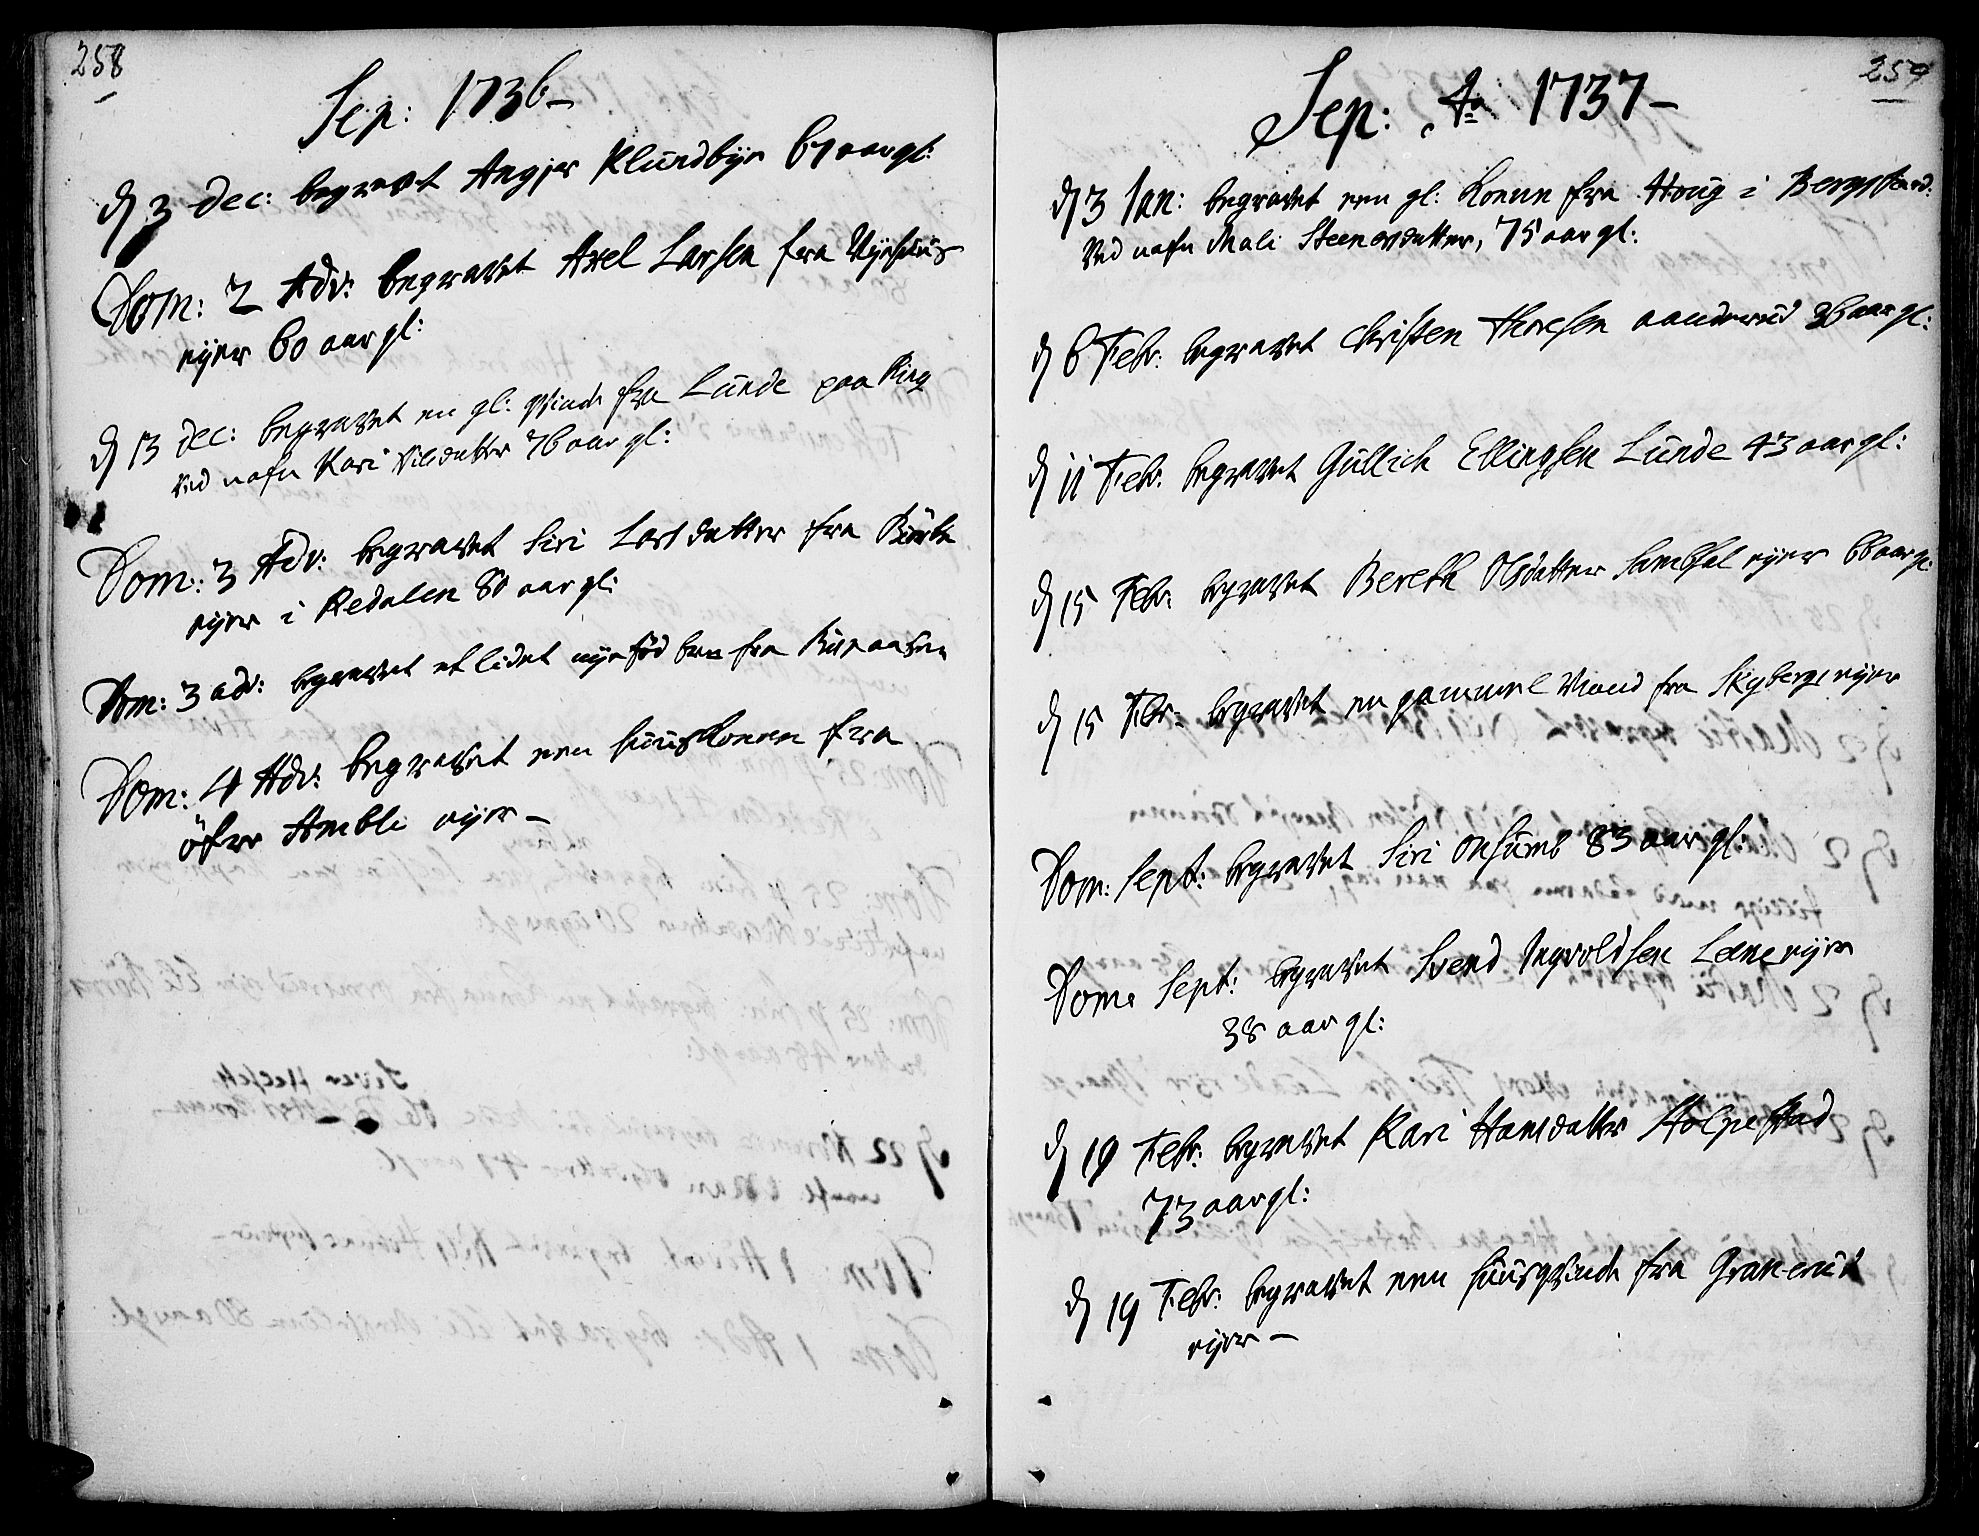 258
Sep: 1736 –
d 3 Dec: begravet Anger Klundbye 67 aar gl:
Dom: 2 Adv: begravet Axel Larsen fra Nyehuus
eyer 60 aar gl:
d 13 Dec: begravet en gl: qvinde fra Lunde paa Ring
ved nafn Kari Nilsdatter 76 aar gl:
Dom: 3 Adv: begravet Siri Larsdatter fra
eyer i Redalen 80 aar gl:
Dom: 3 adv: begravet et lidet nyefød barn fra
Dom: 4 Adv: begravet een huuskonen fra
öfre Ambli eyer –
259
Sep: Ao 1737 –
d 3 Jan: begravet een gl: Konne fra Houg i
ved nafn Mali Steenersdatter, 75 aar gl:
d 6 Febr: begravet Christen Thoresen aanderud 36 aar gl:
d 11 Febr: begravet Gullich Ellingsen Lunde 43 aar gl:
d 15 Febr: begravet Bereth Olsdatter Sambsal eyer 66 aar gl:
d 15 Febr: begravet en gammel Mand fra Skyberg eyer
Dom: Sept: begravet Siri Onsumb 83 aar gl:
Dom: Sept: begravet Svend Ingvoldsen Læne eyer
38 aar gl:
d 19 Febr: begravet Kari Hansdatter Stolpestad
73 aar gl:
d 19 Febr: begravet een huusqvinde fra Granerud
eyer –